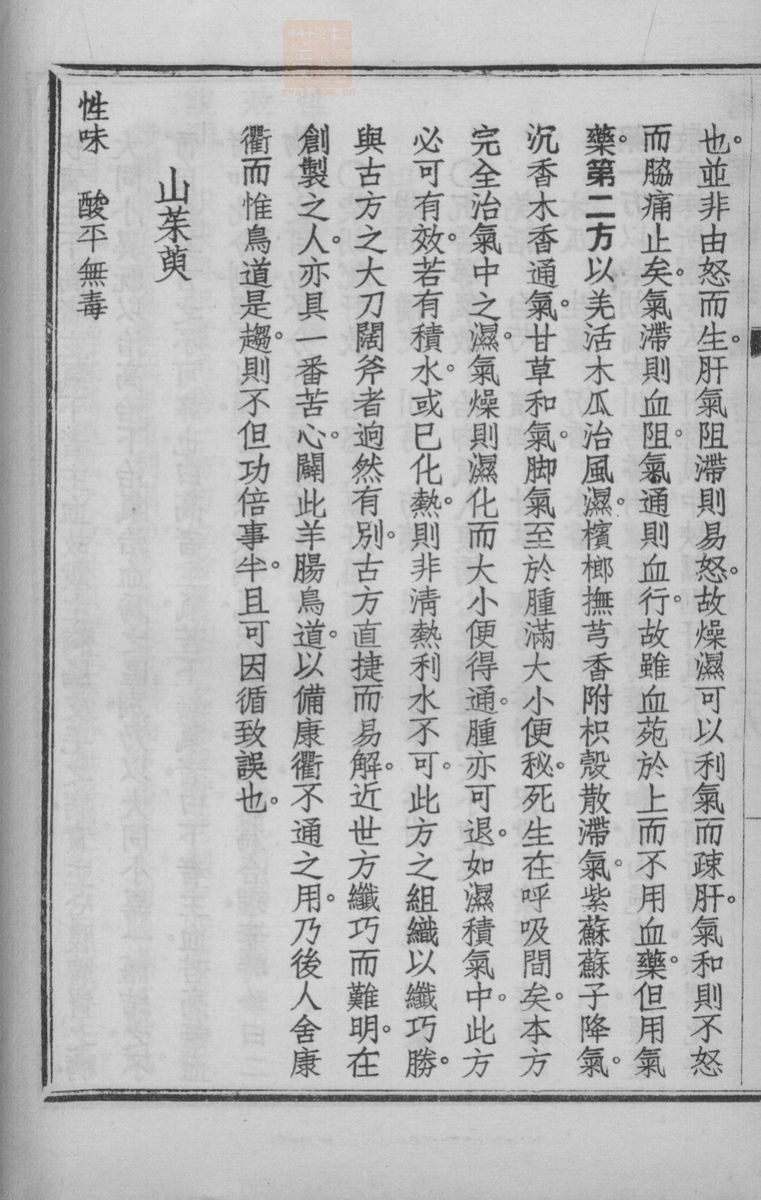 也。並非由怒而生。肝氣阻滯則易怒。故燥濕可以利氣而疎肝。氣和則不怒
而脇痛止矣。氣滯則血阻。氣通則血行。故雖血菀於上而不用血藥。但用氣
藥。第二方以羌活木瓜治風濕。檳榔撫芎香附枳殼散滯氣。紫蘇蘇子降氣。
沉香木香通氣。甘草和氣。脚氣至於腫滿大小便秘。死生在呼吸間矣。本方
完全治氣中之濕。氣燥則濕化而大小便得通。腫亦可退。如濕積氣中。此方
必可有效。若有積水。或已化熱。則非清熱利水不可。此方之組織以纖巧勝。
與古方之大刀闊斧者逈然有別。古方直捷而易解。近世方纖巧而難明。在
創製之人。亦具一番苦心。闢此羊腸鳥道。以備康衢不通之用。乃後人舍康
衢而惟鳥道是趨。則不但功倍事半。且可因循致誤也。
山茱萸
性味　酸平無毒